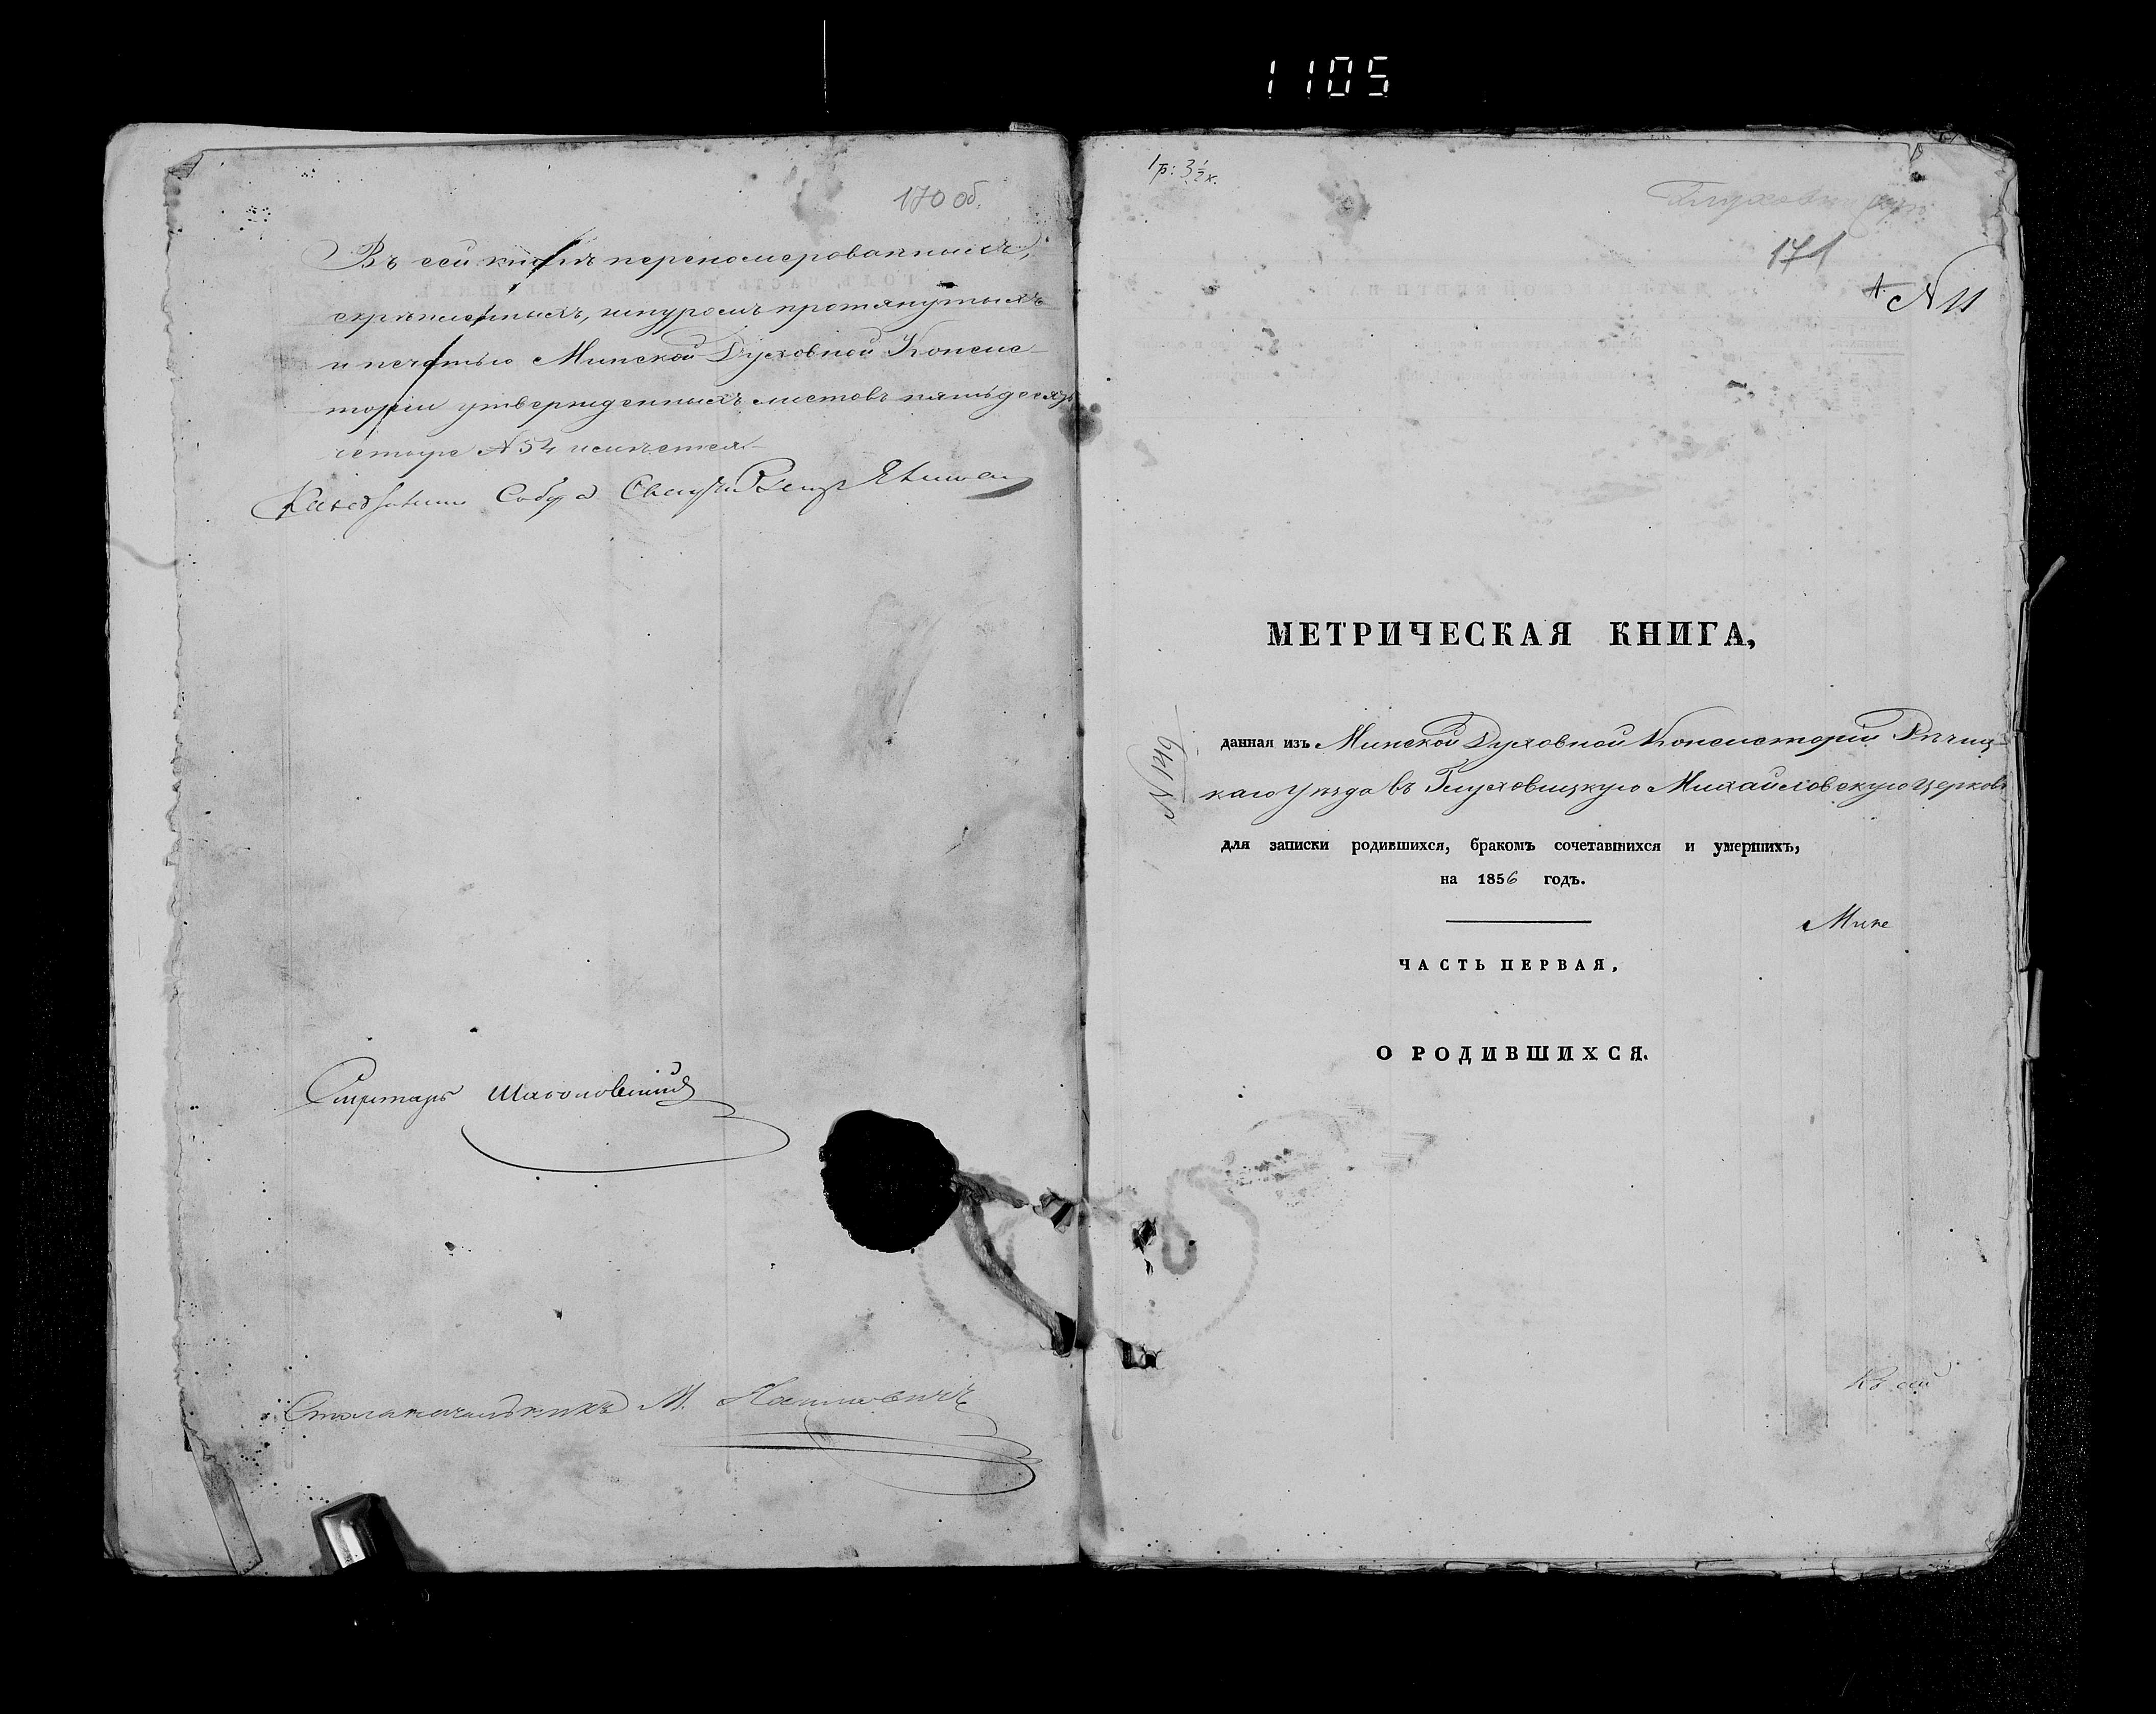 1105
170 об.
Въ сей книгѣ переномерованныхъ,
скрѣпленныхъ, шнуромъ протянутыхъ
и печатью Минской Духовной Консис-
торіи утвержденныхъ листовъ пятьдесятъ
четыре №54 числится
Секретарь
Столоначальникъ М.
1 р: 3 ½ к.
171
№ 11
МЕТРИЧЕСКАЯ КНИГА,
№ 149
данная изъ Минской Духовной Консисторіи Рѣчиц-
каго уѣзда въ Глуховицкую Михайловскую церковь
для записки родившихся, бракомъ сочетавшихся и умершихъ,
на 1856 годъ.
Минс
ЧАСТЬ ПЕРВАЯ,
О РОДИВШИХСЯ.
Къ сей